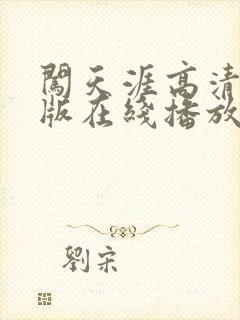 闖天涯高清
版在綫播放
劉宋